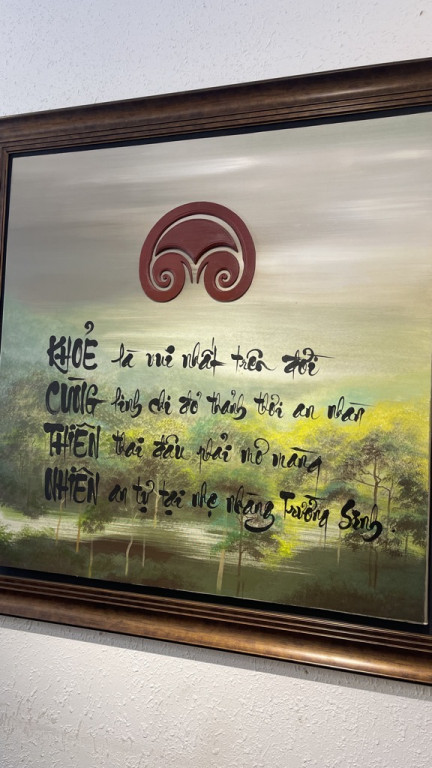 KHOẺ là vui nhất trên đời
CÙNG linh chi đỏ thảnh thơi an nhàn
THIÊN thai đâu phải mơ màng
NHIÊN an tự tại nhẹ nhàng Trường Sinh